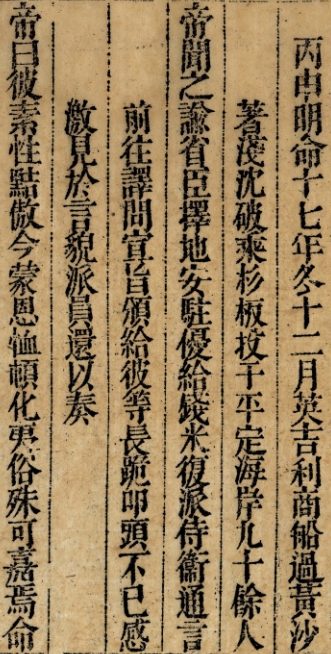 丙申明命十七年冬十二月英吉利商船過黃沙
著淺沈破乘杉板投于平定海岸九十餘人
帝聞之諭省臣擇地安駐優給錢米復派侍衞通言
前往譯問宣旨頒給彼等長跪叩頭不已感
激見於言貌派員還以奏
帝曰彼素性黠傲今蒙恩恤頓化夷俗殊可嘉焉命